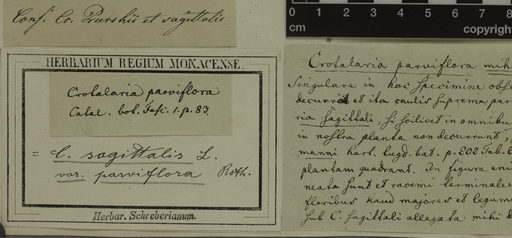 Conf. Cr. Purshii et sagittalis
HERBARIUM REGIUM MONACENSE.
Crotalaria parviflora
Catal. bot. fasc. 1. p. 83.
= C. sagittalis L.
var. parviflora Roth.
Herbar. Schreberianum.
0 1 2 3 4 5 6 7 8
cm copyright
Crotalaria parviflora mihi
Singulare in hoc specimine obs
decurrat et ita caulis suprema par
ria sagittali, si scilicet in omnibu
in nostra planta non decurrunt,
manni hort. lugd. bat. p. 202 Tab.
plantam quadrant. In figura eni
neata sunt et racemi terminale
floribus haud majores et legum
sub C. sagittali allegata mihi d